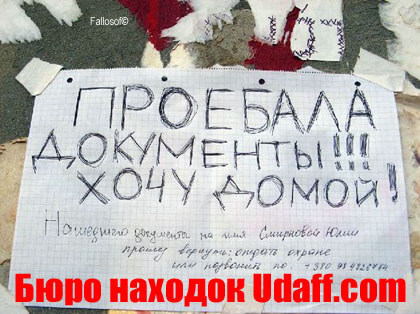 Fallosof©
ПРОЕБАЛА
ДОКУМЕНТЫ!!!
ХОЧУ ДОМОЙ!
Нашедшего документы на имя Смирновой Юлии
прошу вернуть: отдать охране
или позвонить по. +380
Бюро находок Udaff.com